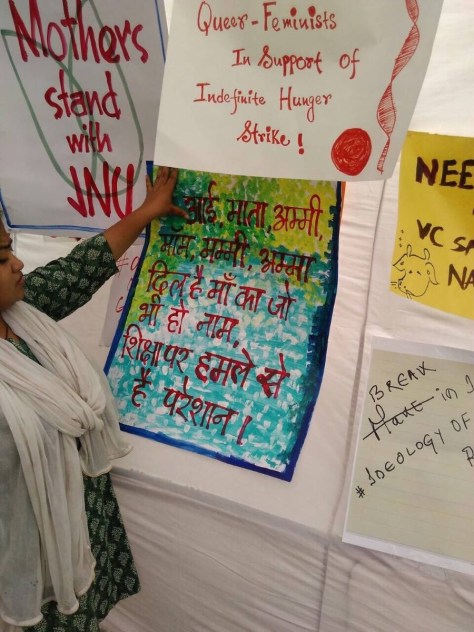 Mothers
stand
with
JNU
Queer-Feminists
In Support of
Indefinite Hunger
Strike!
आई माता, अम्मी,
मॉम, मम्मी, अम्मा
दिल है माँ का जो
भी हो नाम,
शिक्षा पर हमले से
है परेशान!
NEE
VC SA
NA
BREAK
in
# IDEOLOGY OF